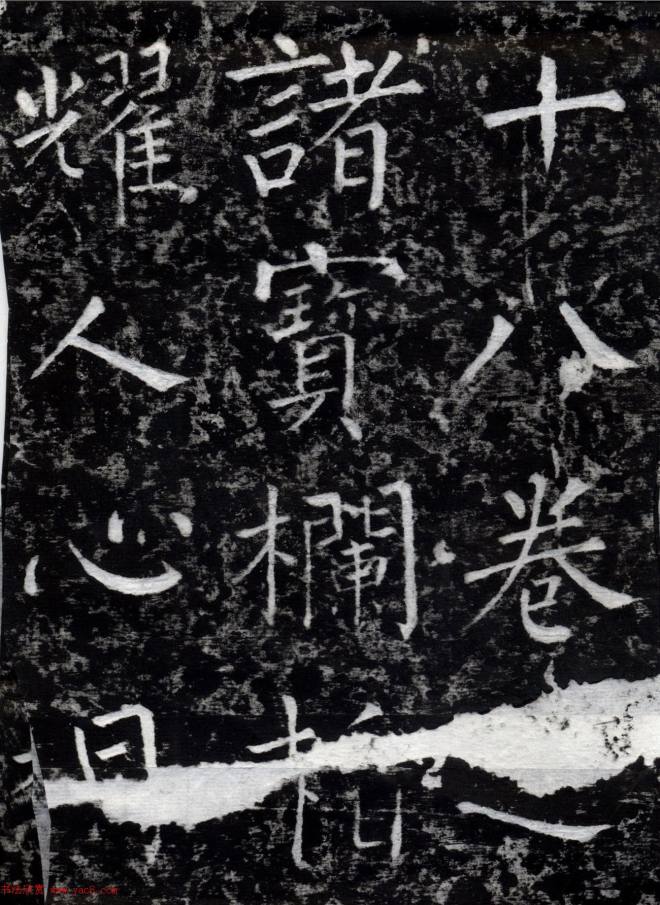 十八卷
諸寶欄
耀人心
书法欣赏 www.yac8.com